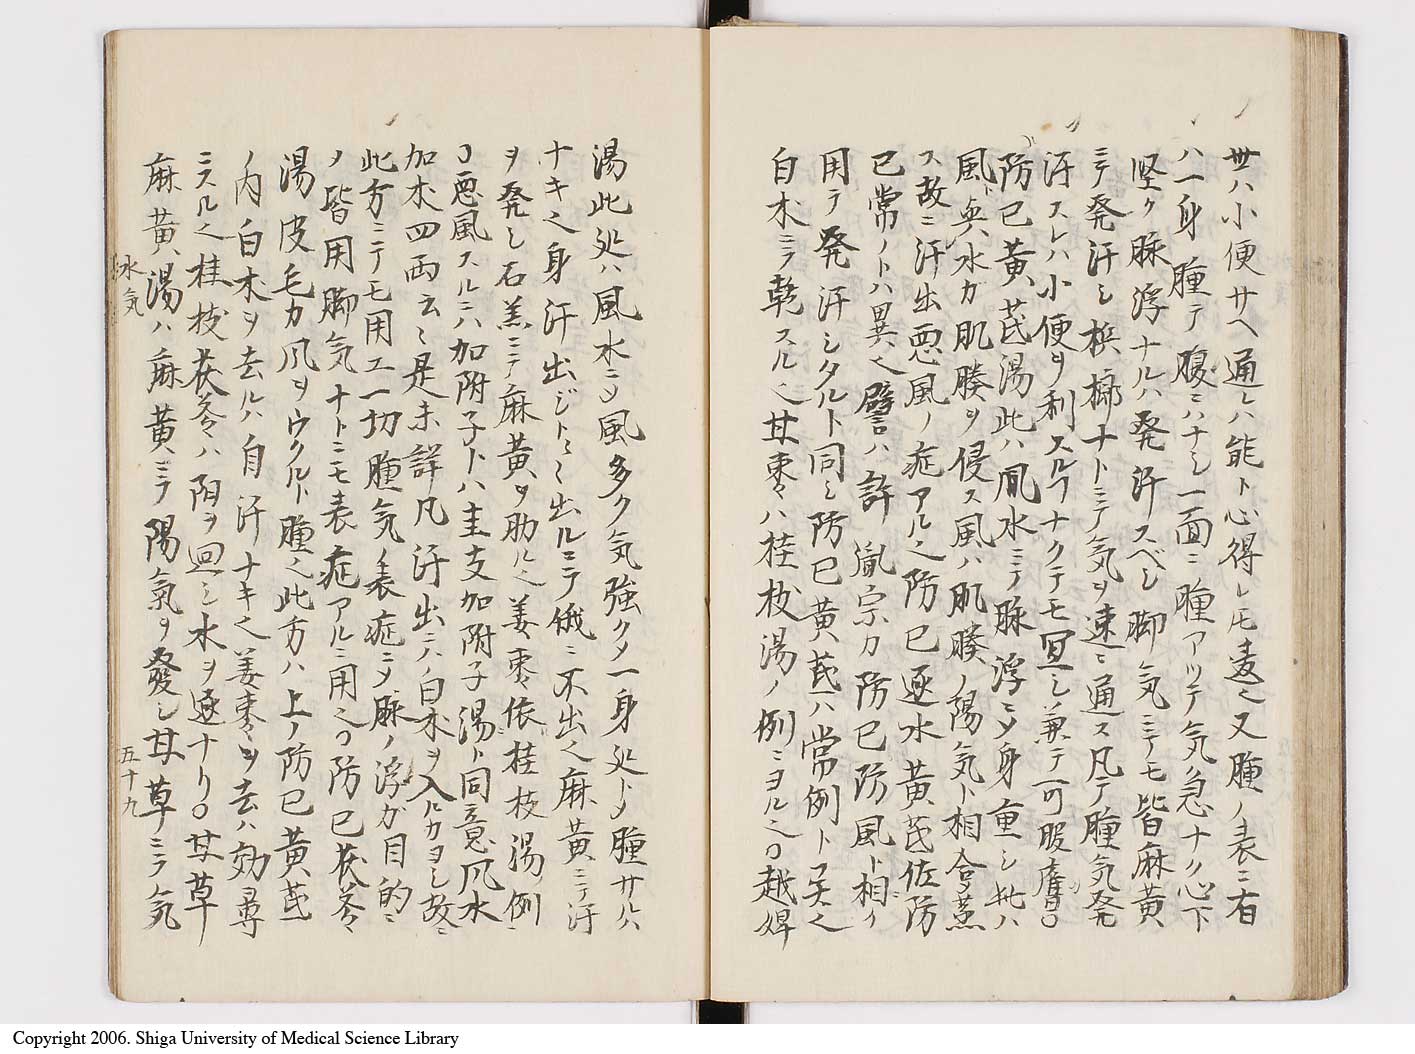 丗ハ小便サヘ通レハ能ト心得レ𪜈麁之又腫ノ表ニ有
ハ一身腫テ腹ニハナシ一面ニ腫アツテ気ノ急ナク心下
堅ク脉浮ナルハ発汗スベシ脚気ニテモ皆麻黄
ニテ発汗シ梹榔ナトニテ気ヲ速ニ通ス凡テ腫気発
汗スレハ小便ヲ利スルヿナクテモ宜シ兼テ可服
防已黄茋湯此ハ風水ニテ脉浮ニメ身重シ此ハ
風ト与水ガ肌膝ヲ侵ス風ハ肌膝ノ陽気ト相合蒸
ス故ニ汗出悪風ノ症アル之防已逐水黄茋佐防
已常ノトハ異之譬ハ許胤宗カ防已防風ト相
用テ発汗シタルト同シ防已黄茋ハ常例ト
白朮ニテ乾スル之甘棗ハ桂枝湯ノ例ニヨル之○越婢
湯此処ハ風水ニメ風多ク気強クメ一身処トメ腫サルハ
ナキ之身汗出ジトミ出ルニテ俄ニ不出之麻黄ニテ汗
ヲ発シ石羔ニテ麻黄ヲ助ル之姜棗依桂枝湯例
○悪風スルニハ加附子トハ主支加附子湯ト同意風水
加朮四両云々是未詳凡汗出ニハ白朮ヲ入ルカヨシ故ニ
此方ニテモ用エ一切腫気ノ表症ニメ脉ノ浮ガ目的ニ
ノ皆用脚気ナトニモ表症アルニ用之○防已茯苓
湯皮毛カ風ヲウクルト腫之此方ハ上ノ防已黄茋
ノ内白朮ヲ去ルハ自汗ナキ之姜棗ヲ去ハ効専
ニスル之桂枝茯苓ハ陽ヲ回シ水ヲ逐ナリ○甘草
麻黄湯ハ麻黄ニテ陽気ヲ發シ甘草ニテ気
水気
五十九
Copyright 2006. Shiga University of Medical Science Library